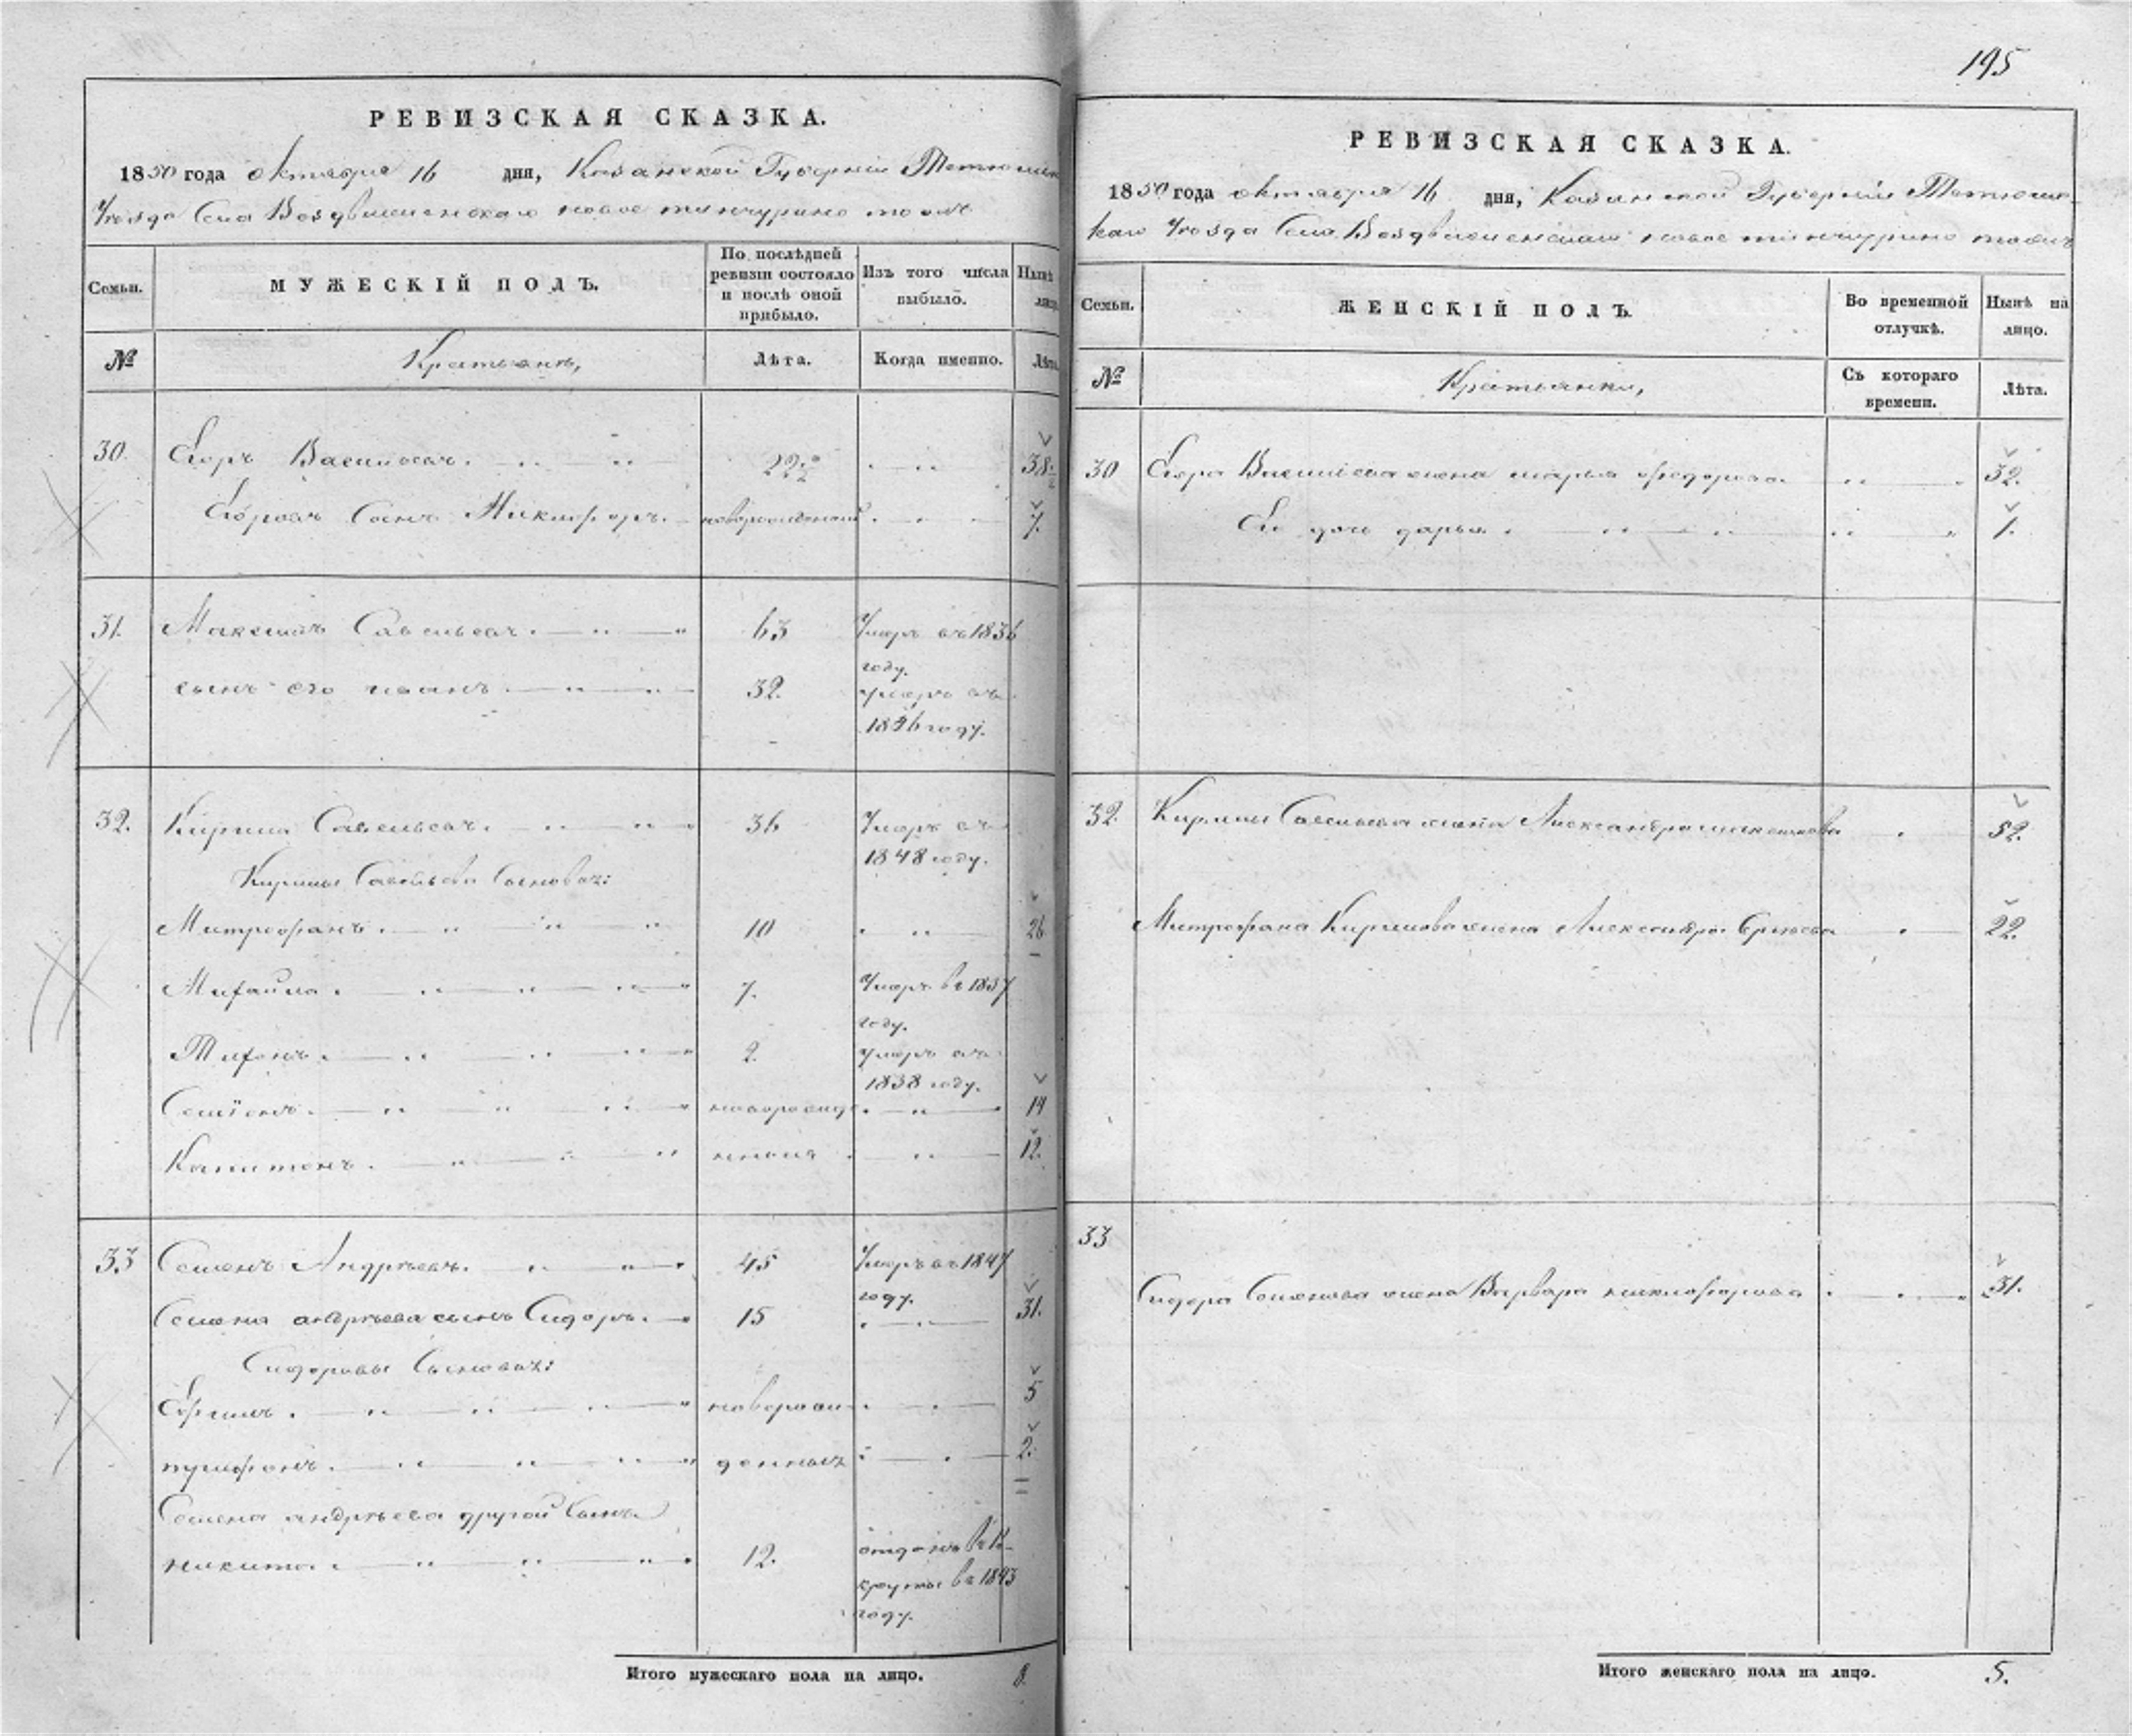 195
РЕВИЗСКАЯ СКАЗКА.
1850 года октября 16 дня, Казанской Губерніи Тетюшск
Уѣзда Села Воздвиженскаго новое тинчурино тожъ
Семьи. МУЖЕСКІЙ ПОЛЪ. По послѣдней ревизіи состояло и послѣ оной прибыло. Изъ того числа выбыло. Нынѣ лицо
№ Крестьянъ, Лѣта. Когда именно. Лѣта.
30. Егоръ Васильевъ. 22 38.
Егоровъ Сынъ Никифоръ. новорожденный 7.
31. Максимъ Савельевъ. 63 Умеръ въ 1836
году.
сынъ его иванъ. 32. умеръ въ
году.
32. Кирила Савельевъ. 36 Умеръ въ
1848 году.
Кирилы Савельева Сыновья:
Митрофанъ. 10 26
Михайла. 7. Умеръ въ 1837
году.
Тихонъ. 2. умеръ въ
1838 году.
Семіонъ. новорожде 14
Капитонъ. нныя 12.
33 Семенъ Андрѣевъ. 45 Умеръ въ 1847
году.
Семена андрѣева сынъ Сидоръ. 15 31.
Сидоровы Сыновья:
Ефимъ. новорож 5
денныхъ 2.
Семена андрѣева другой Сынъ
никита. 12. отданъ въ Ре-
круты въ 1843
году.
Итого мужескаго пола на лицо. 8
РЕВИЗСКАЯ СКАЗКА.
1850 года октября 16 дня, Казанской Губерніи Тетюшс-
каго Уѣзда Села Воздвиженскаго новое тинчурино тожъ
Семьи. ЖЕНСКІЙ ПОЛЪ. Во временной отлучкѣ. Нынѣ на лицо.
№ Крестьянки, Съ котораго времени. Лѣта.
30 Егора Васильева жена марья федорова. 32.
Ее дочь дарья. 1.
32. Кирилы Савельева жена Александра максимова 52.
Митрофана Кирилова жена Александра 22.
33
Сидора Семенова жена Варвара никифорова 31.
Итого женскаго пола на лицо. 5.